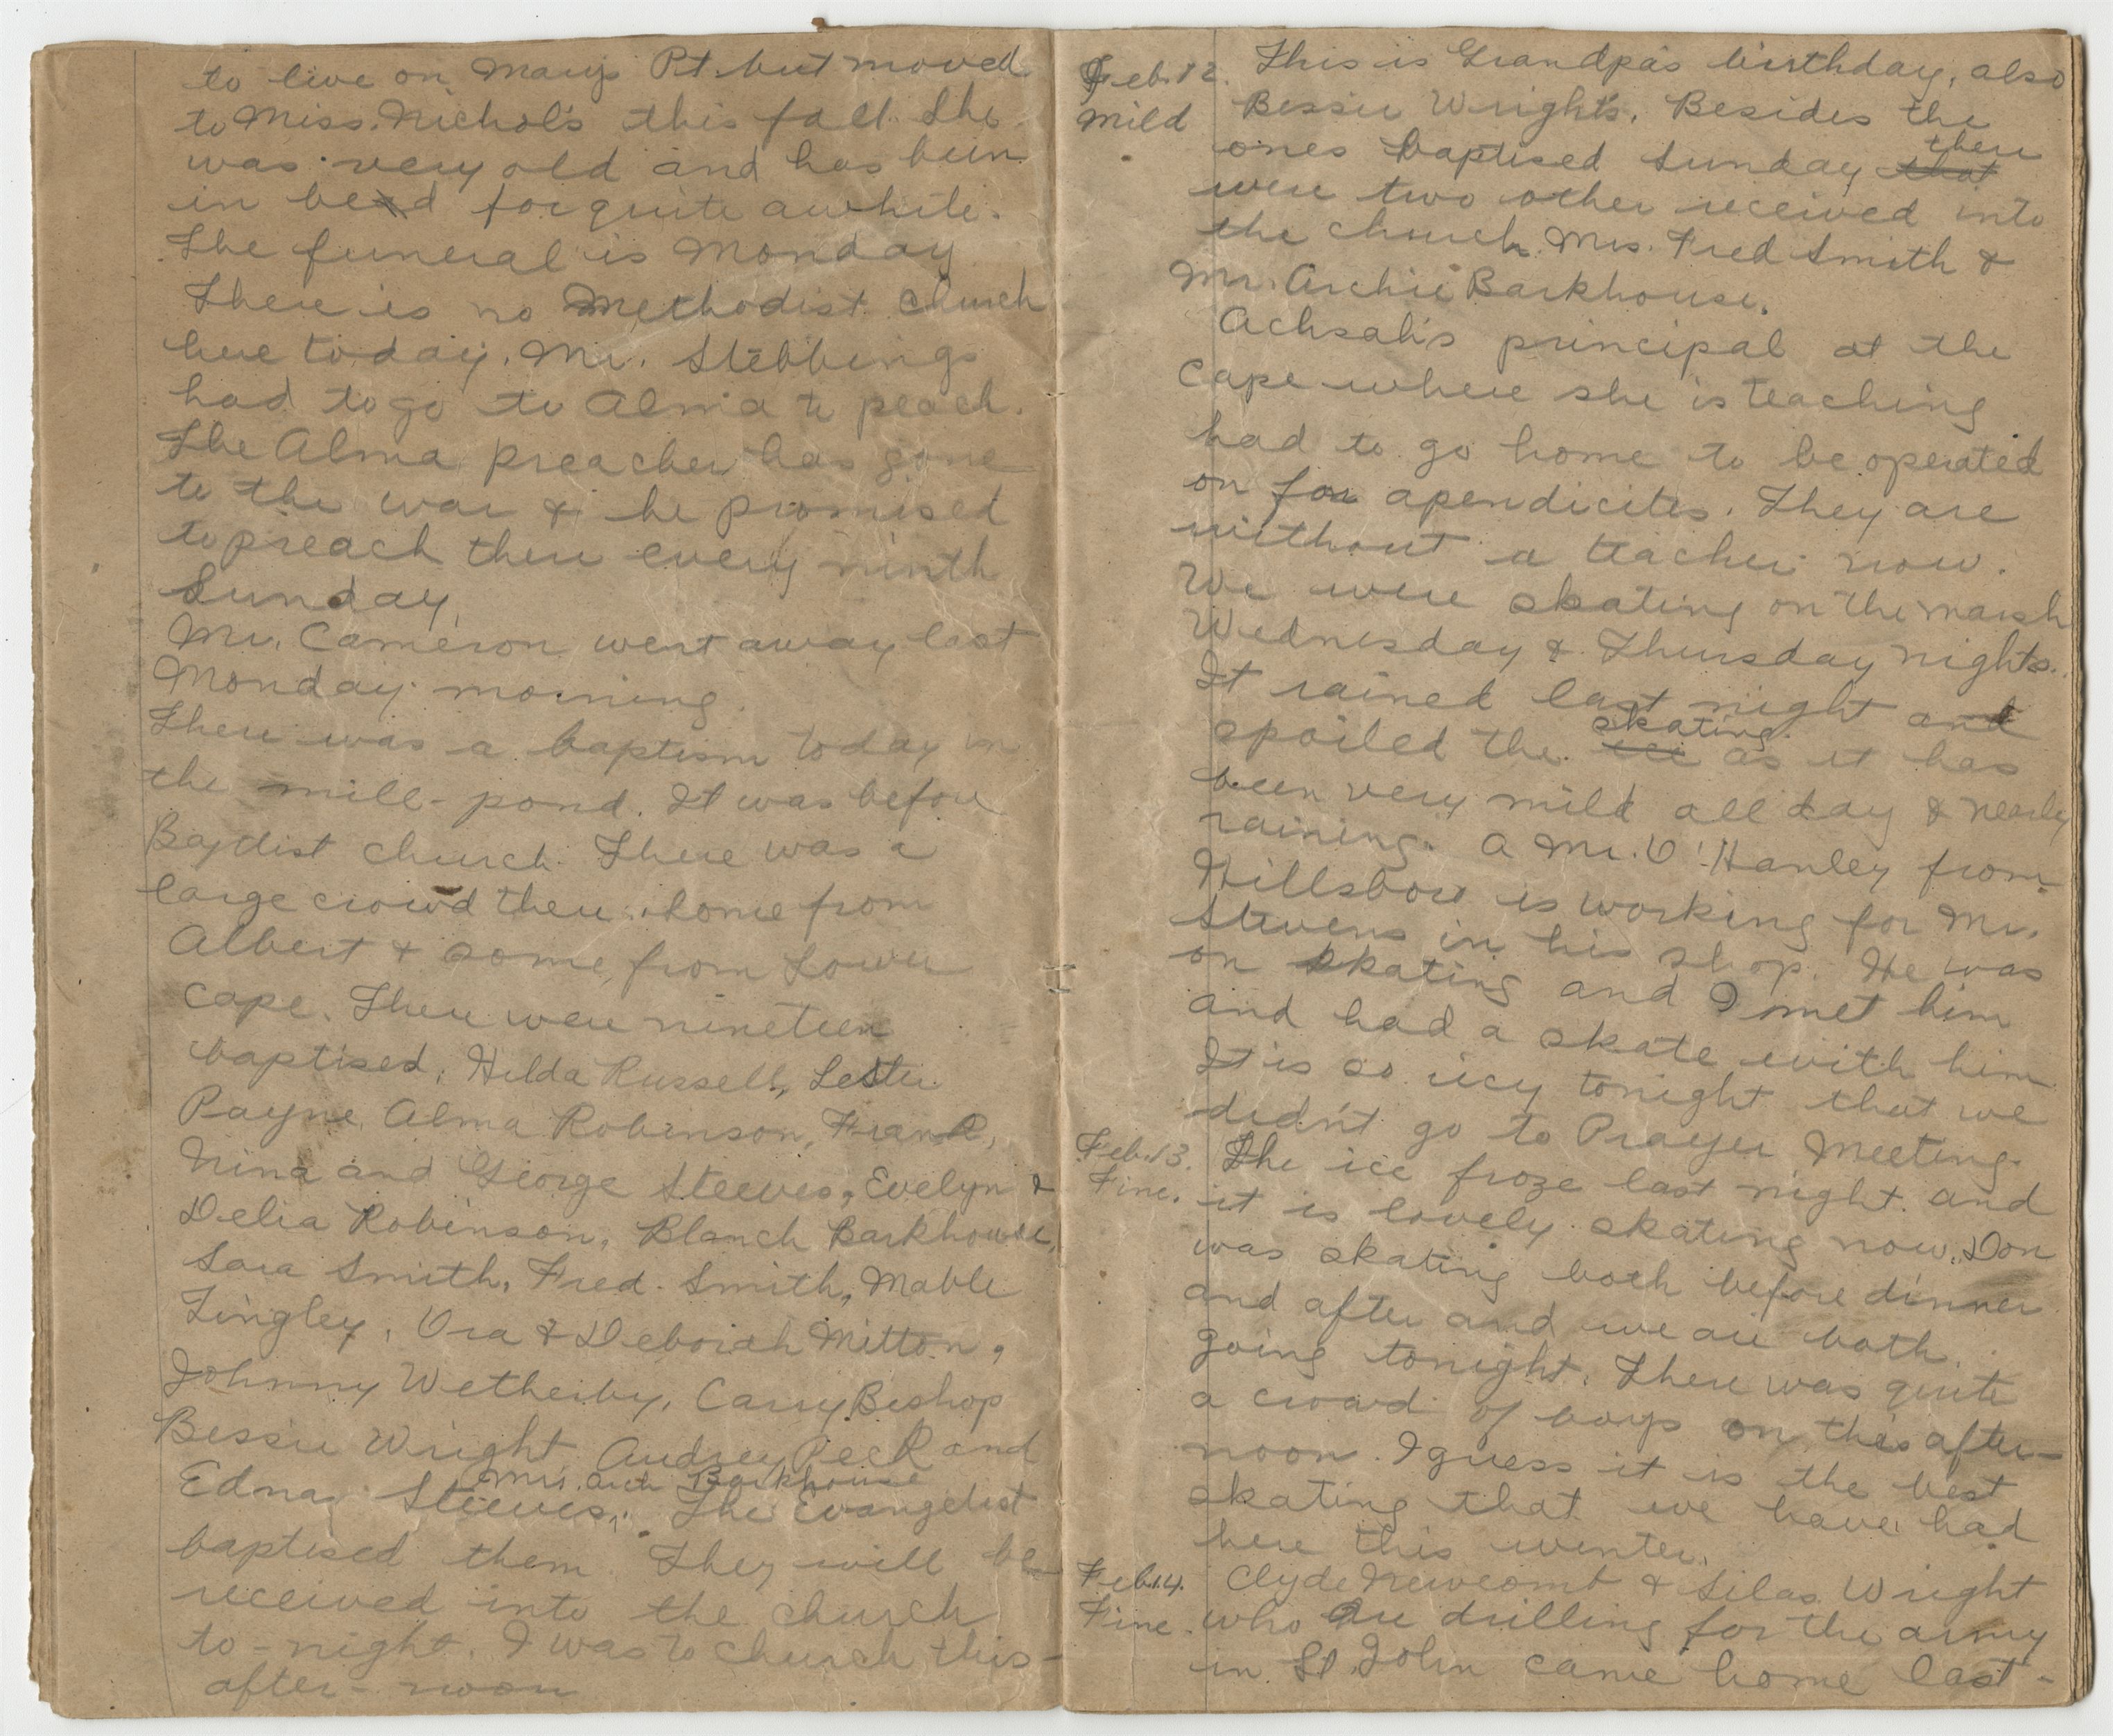 to live on Marys Pt. but moved
to Miss. Nichol's this fall. She
was very old and has been
in bed for quite awhile.
The funeral is Monday
There is no Methodist church
here today. Mr. Stebbings
had to go to Alma to peach.
The Alma preacher has gone
to the war & he promised
to preach there every ninth
Sunday.
Mr. Cameron went away last
Monday morning.
There was a baptism today in
the mill-pond. It was before
Baptist church. There was a
large crowd there. some from
Albert & some from Lower
Cape. There were nineteen
baptised; Hilda Russell, Lester
Payne, Alma Robinson, Frank,
Nina and George Steeves, Evelyn &
Delia Robinson, Blanch Barkhouse,
Sara Smith, Fred. Smith, Mable
Tingley, Ora & Deborah Mitton,
Johnny Wetherby, Carry Bishop
Bessie Wright, Audrey Peck and
Mrs. Arch Barkhouse
Edna Steeves. The Evangelist
baptised them. They will be
received into the church
to-night. I was to church this
after-noon
Feb. 12. This is Grandpa's birthday, also
Mild Bessie Wright's. Besides the
there
ones baptised Sunday that
were two other received into
the church. Mrs. Fred Smith &
Mr. Archie Barkhouse.
Achsah's principal at the
Cape where she is teaching
had to go home to be operated
on for apendicites. They are
without a teacher now.
We were skating on the marsh
Wednesday & Thursday nights.
It rained last night and
skating
spoiled the ice as it has
been very mild all day & nearly
raining. A Mr. O'Hanley from
Hillsboro is working for Mr.
Stevens in his shop. He was
on skating and I met him
and had a skate with him
It is so icy tonight that we
didn't go to Prayer Meeting.
Feb. 13. The ice froze last night and
Fine. it is lovely skating now. Don
was skating both before dinner
and after and we are both
going tonight. There was quite
a crowd of boys on this after-
noon. I guess it is the best
skating that we have had
here this winter.
Feb. 14. Clyde Newcomb & Silas Wright
Fine. who are drilling for the army
in St. John came home last-